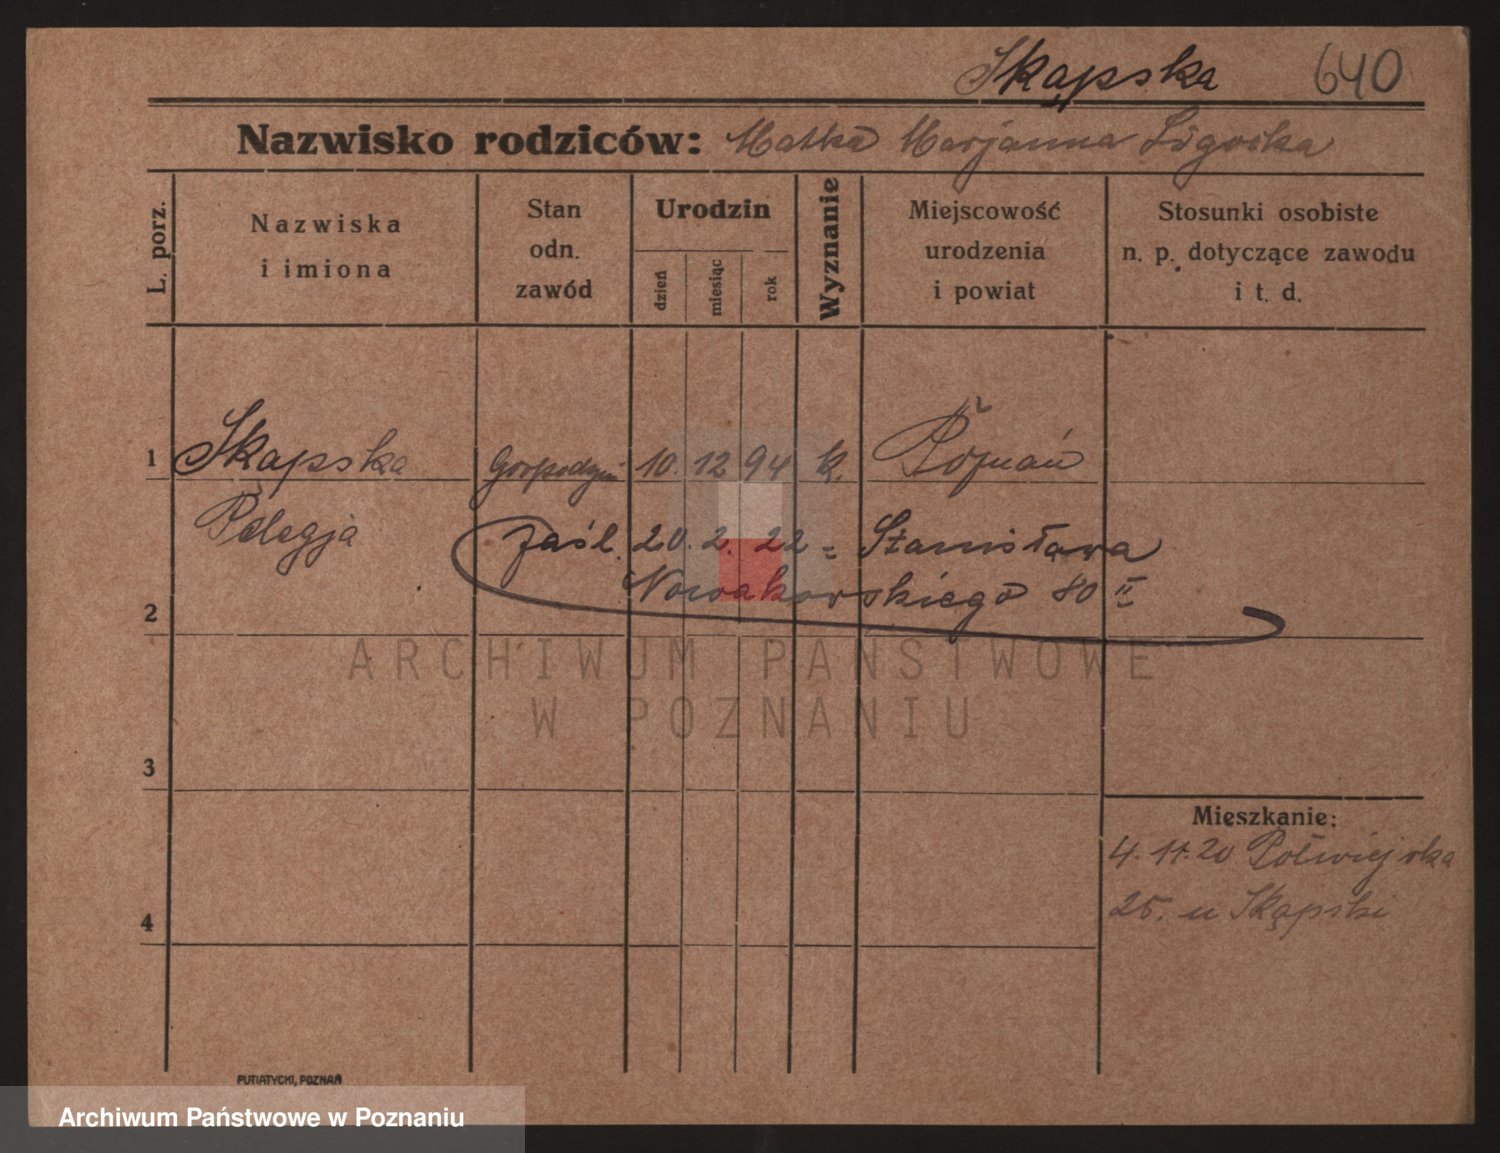 Skąpska 640
Nazwisko rodziców: Matka Marjanna Ligocka
L. porz.
Nazwiska
i imiona
Stan
odn.
zawód
Urodzin
dzień
miesiąc
rok
Wyznanie
Miejscowość
urodzenia
i powiat
Stosunki osobiste
n. p. dotyczące zawodu
i t. d.
1 Skąpska Gospodyni 10. 12 94 k. Poznań
Pelagja
zaśl. 20. 2. 22 = Stanisława
Nowakowskiego 80 II
2
ARCHIWUM PAŃSTWOWE
W POZNANIU
3
Mieszkanie:
4. 11. 20 Półwiejska
25. u Skąpski
4
PUTIATYCKI, POZNAŃ
Archiwum Państwowe w Poznaniu